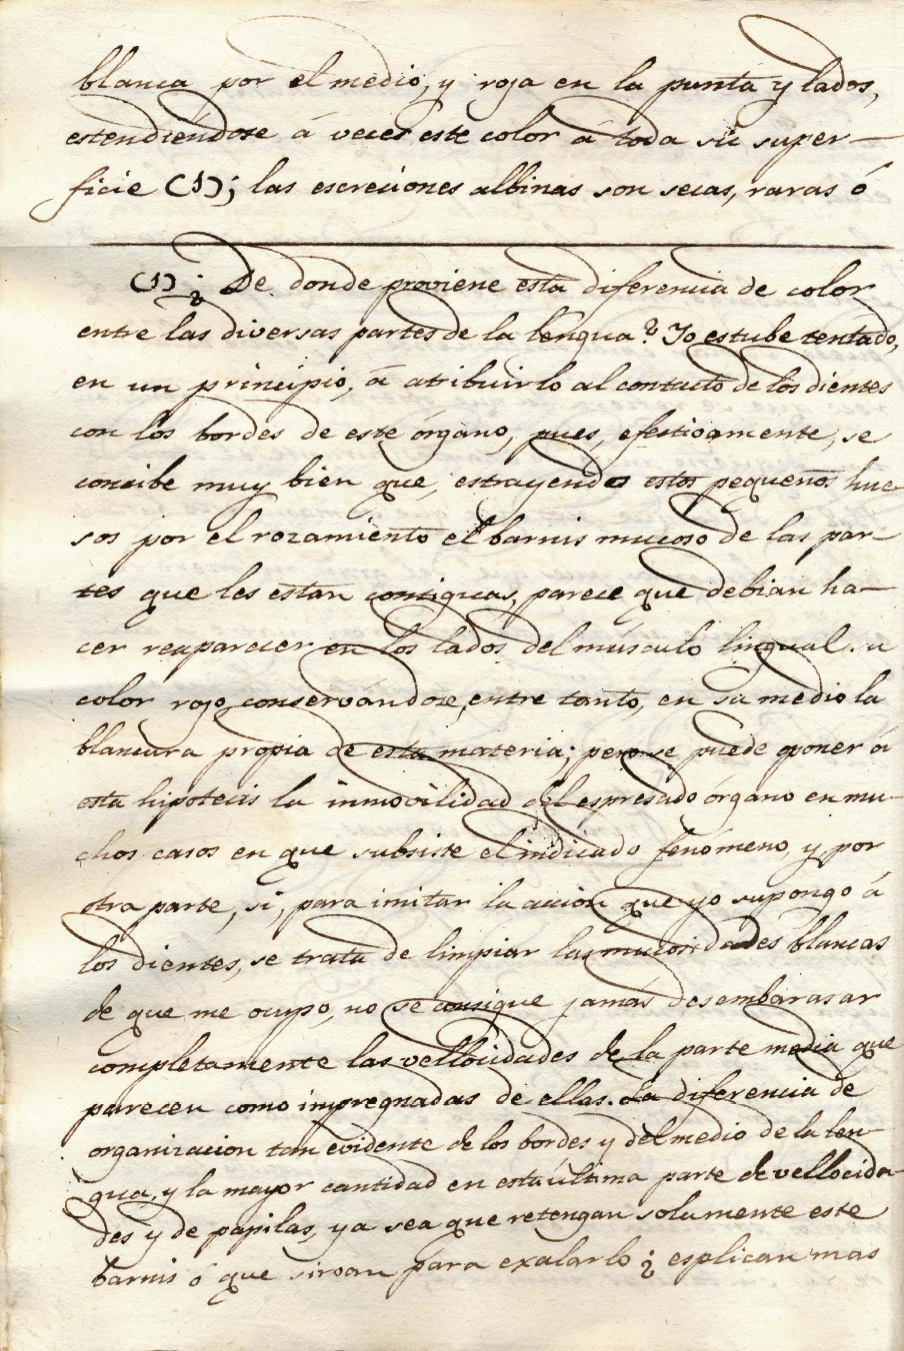 blanca por el medio, y roja en la punta y lados,
estendiéndose á veces este color á toda su super-
ficie (1); las escreciones albinas son secas, raras ó
(1) ¿De donde proviene esta diferencia de color
entre las diversas partes de la lengua? Yo estube tentado,
en un principio, á atribuirlo al contacto de los dientes
con los bordes de este órgano, pues, efectivamente, se
concibe muy bien que, estrayendo estos pequeños hue-
sos por el rozamiento el barnis mucoso de las par-
tes que les estan contiguas, parece que debian ha-
cer reaparecer en los lados del músculo lingual. u
color rojo, conservándose, entre tanto, en su medio la
blancura propia de esta materia; pero se puede oponer á
esta hipotecis la inmovilidad del espresado órgano en mu-
chos casos en que subsiste el indicado fenómeno, y, por
otra parte, si, para imitar la accion que yo supongo á
los dientes, se trata de limpiar las mucosidades blancas
de que me ocupo, no se consigue jamás desembarasar
completamente las vellocidades de la parte media que
parecen como impregnadas de ellas. La diferencia de
organizacion tan evidente de los bordes y del medio de la len-
gua, y la mayor cantidad en esta última parte de vellocida-
des y de papilas, ya sea que retengan solamente este
barnis ó que sirvan para exalarlo ¿ esplican mas